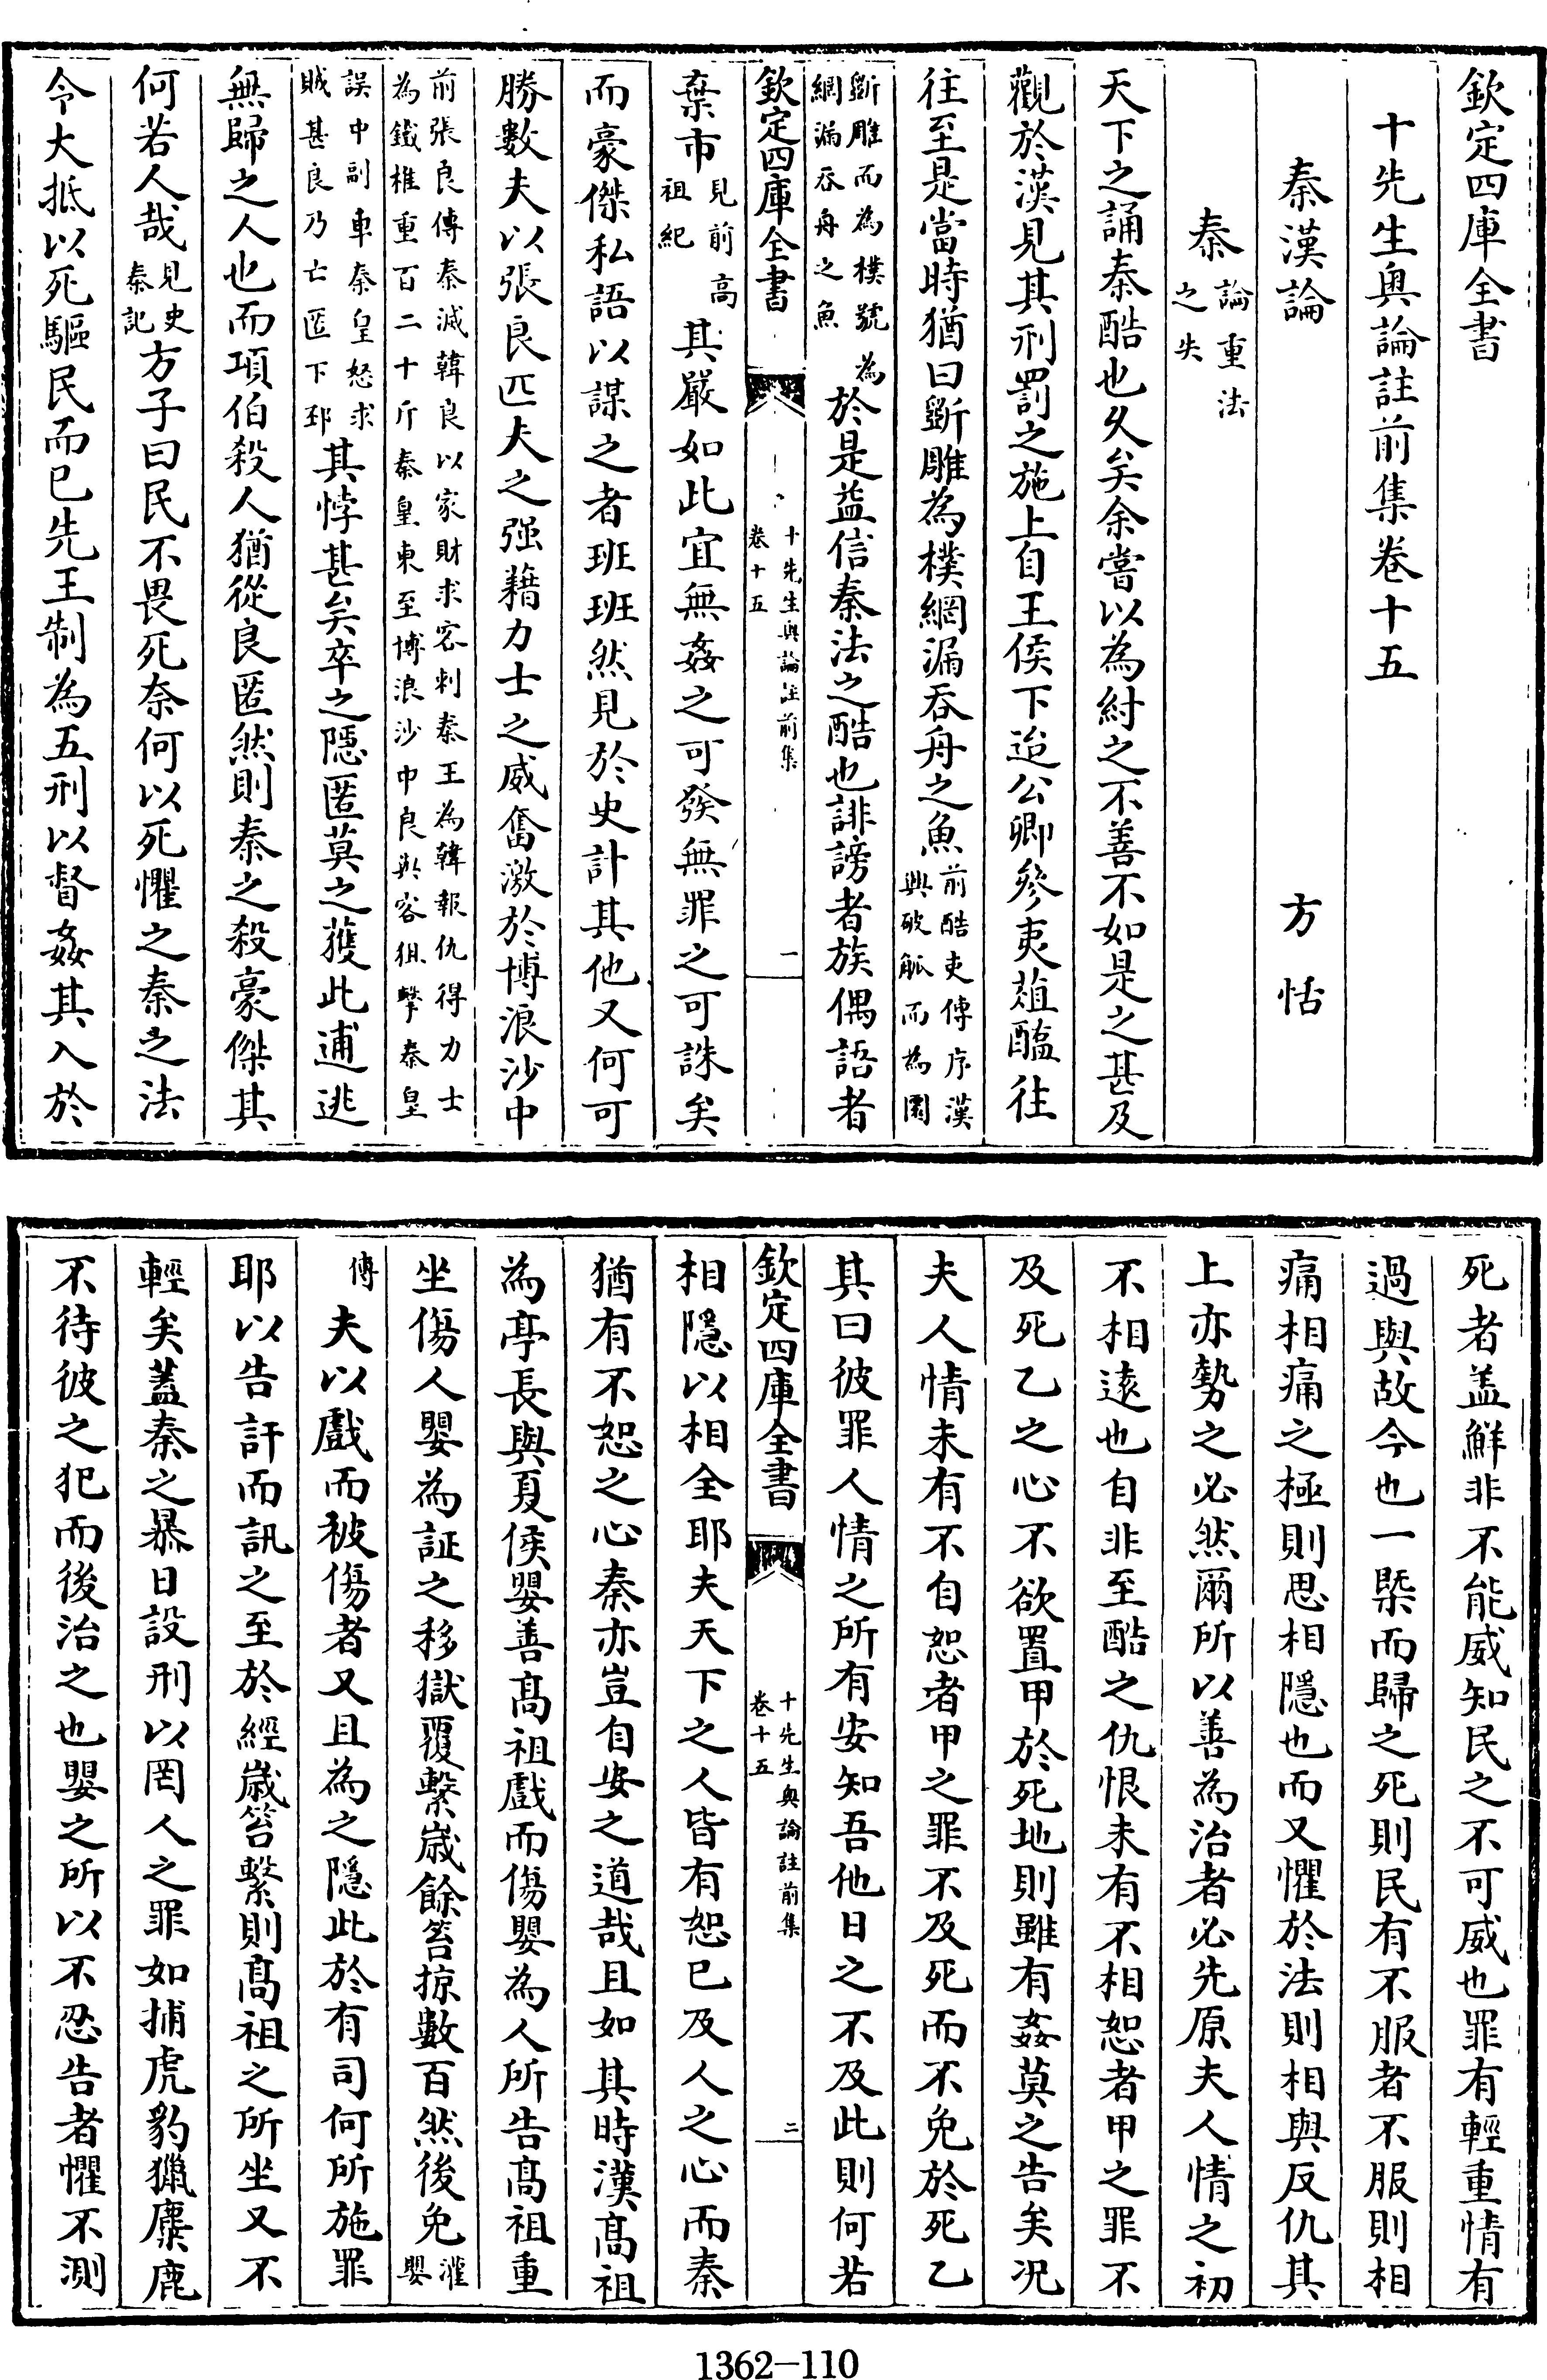 欽定四庫全書
十先生奧論註前集卷十五
秦漢論　方恬
秦論重法之失
天下之誦秦酷也久矣余嘗以為紂之不善不如是之甚及
觀於漢見其刑罰之施上自王侯下迨公卿參夷葅醢往
往至是當時猶曰斵雕為樸網漏吞舟之魚前酷吏傳序漢興破觚而為圜
斵雕而為樸號為網漏吞舟之魚於是益信秦法之酷也誹謗者族偶語者
欽定四庫全書　十先生奧論註前集卷十五　一
棄市見前高祖紀其嚴如此宜無姦之可發無罪之可誅矣
而豪傑私語以謀之者班班然見於史計其他又何可
勝數夫以張良匹夫之强藉力士之威奮激於博浪沙中
前張良傳秦滅韓良以家財求客刺秦王為韓報仇得力士為鐵椎重百二十斤秦皇東至博浪沙中良與客狙擊秦皇
誤中副車秦皇怒求賊甚良乃亡匿下邳其悖甚矣卒之隱匿莫之獲此逋逃
無歸之人也而項伯殺人猶從良匿然則秦之殺豪傑其
何若人哉見史秦記方子曰民不畏死奈何以死懼之秦之法
令大抵以死驅民而已先王制為五刑以督姦其入於
死者盖鮮非不能威知民之不可威也罪有輕重情有
過與故今也一槩而歸之死則民有不服者不服則相
痛相痛之極則思相隱也而又懼於法則相與反仇其
上亦勢之必然爾所以善為治者必先原夫人情之初
不相遠也自非至酷之仇恨未有不相恕者甲之罪不
及死乙之心不欲置甲於死地則雖有姦莫之告矣况
夫人情未有不自恕者甲之罪不及死而不免於死乙
其曰彼罪人情之所有安知吾他日之不及此則何若
欽定四庫全書　十先生奧論註前集卷十五　二
相隱以相全耶夫天下之人皆有恕已及人之心而秦
猶有不恕之心秦亦豈自安之道哉且如其時漢高祖
為亭長與夏侯嬰善高祖戲而傷嬰為人所告高祖重
坐傷人嬰為証之移獄覆繫歳餘笞掠數百然後免灌嬰
傳夫以戲而被傷者又且為之隱此於有司何所施罪
耶以告訐而訊之至於經歳笞繫則髙祖之所坐又不
輕矣蓋秦之暴日設刑以罔人之罪如捕虎豹獵麋鹿
不待彼之犯而後治之也嬰之所以不忍告者懼不測
1362—110